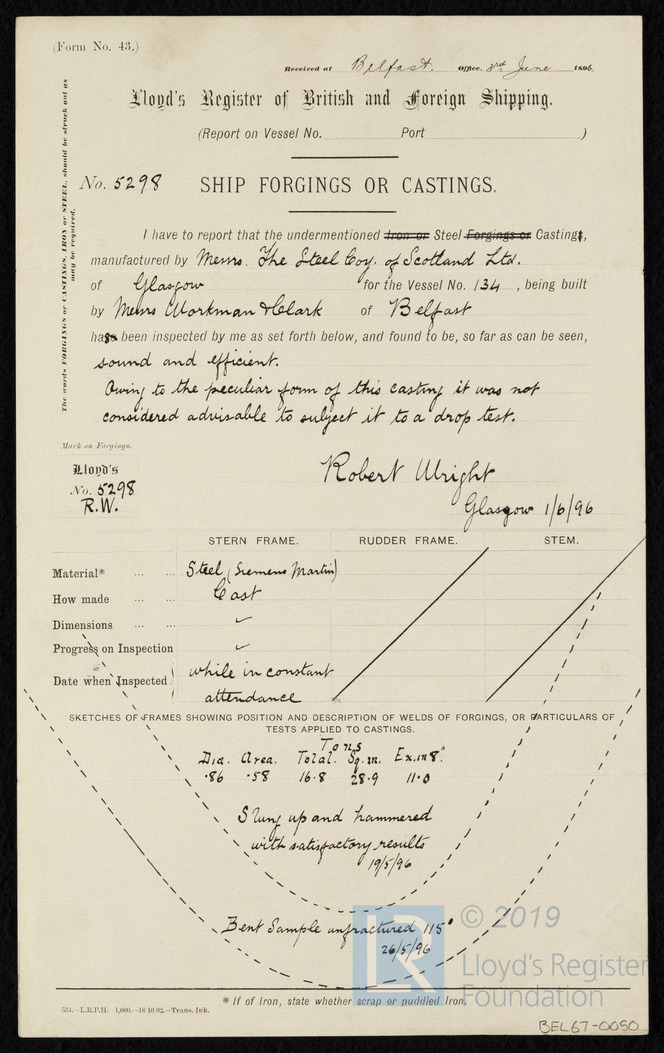 (Form No. 43.)
Received at Belfast. Office, 3rd June 1896
Lloyd's Register of British and Foreign Shipping.
(Report on Vessel No. Port )
The words FORGINGS or CASTINGS, IRON or STEEL, should be struck out as may be required.
No. 5298 SHIP FORGINGS OR CASTINGS.
I have to report that the undermentioned Iron or Steel Forgings or Castings,
manufactured by Messrs. The Steel Coy. of Scotland Ltd.
of Glasgow for the Vessel No. 134, being built
by Messrs Workman & Clark of Belfast
has been inspected by me as set forth below, and found to be, so far as can be seen,
sound and efficient.
Owing to the peculiar form of this casting it was not
considered advisable to subject it to a drop test.
Mark on Forgings.
Lloyd's
No. 5298
R.W.
Robert Wright
Glasgow 1/6/96
STERN FRAME. RUDDER FRAME. STEM.
Material* ... ... Steel (Siemens Martin)
How made ... ... Cast
Dimensions ... ... ✓
Progress on Inspection ✓
Date when Inspected while in constant
attendance
SKETCHES OF FRAMES SHOWING POSITION AND DESCRIPTION OF WELDS OF FORGINGS, OR PARTICULARS OF
TESTS APPLIED TO CASTINGS.
Tons
Dia. Area. Total. Sq. in. Ex. in 8".
.86 .58 16.8 28.9 11.0
Slung up and hammered
with satisfactory results
19/5/96
Bent Sample unfractured 115°
26/5/96
*If of Iron, state whether scrap or puddled Iron.
534.—L.R.P.H. 1,000.—18 10 92.—Trans. Ink.
LR
© 2019
Lloyd's Register
Foundation
BEL67-0050